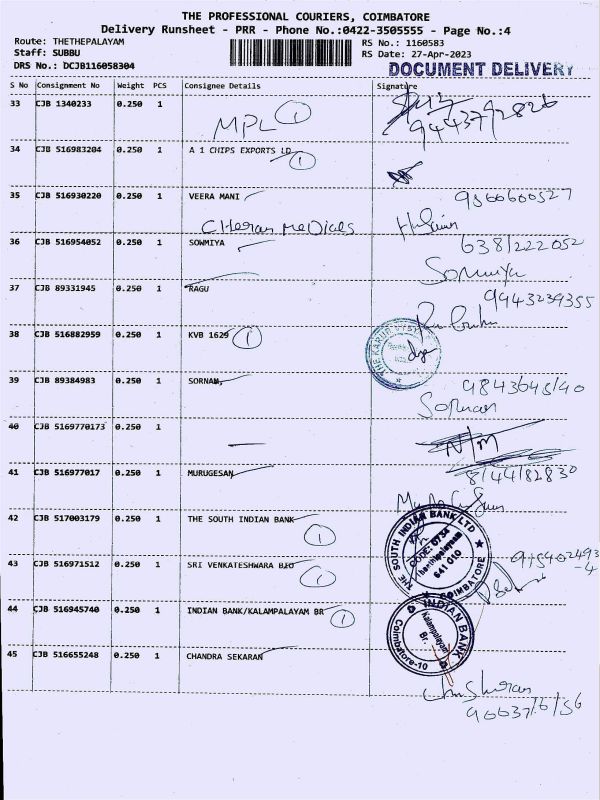 THE PROFESSIONAL COURIERS, COIMBATORE
Delivery Runsheet - PRR - Phone No.:0422-3505555 - Page No.:4
Route: THETHEPALAYAM
RS No.: 1160583
Staff: SUBBU
RS Date: 27-Apr-2023
DRS No.: DCJB116058304
DOCUMENT DELIVERY
S No Consignment No Weight PCS Consignee Details Signature
33 CJB 1340233 0.250 1
MPL 1
34 CJB 516983204 0.250 1 A 1 CHIPS EXPORTS LD 1
35 CJB 516930220 0.250 1 VEERA MANI
CHeran MeDicals
36 CJB 516954052 0.250 1 SOWMIYA
638/222052
Sowmiya
37 CJB 89331945 0.250 1 RAGU
9943239355
38 CJB 516882959 0.250 1 KVB 1629 1
THE KARUR VYSYA
39 CJB 89384983 0.250 1 SORNAM,
9843645/40
Sornam
40 CJB 5169770173 0.250 1
N/M
41 CJB 516977017 0.250 1 MURUGESAN
8/44182830
42 CJB 517003179 0.250 1 THE SOUTH INDIAN BANK 1
THE SOUTH INDIAN BANK LTD
CODE: 0734
641 010
COIMBATORE
43 CJB 516971512 0.250 1 SRI VENKATESHWARA BIO 1
44 CJB 516945740 0.250 1 INDIAN BANK/KALAMPALAYAM BR 1
INDIAN BANK
Kalampalayam
Br.
Coimbatore-10
45 CJB 516655248 0.250 1 CHANDRA SEKARAN
90037/6/56